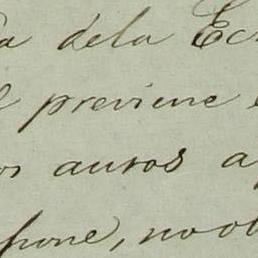 a dela Ec
previene
os autos a
pone, no ob